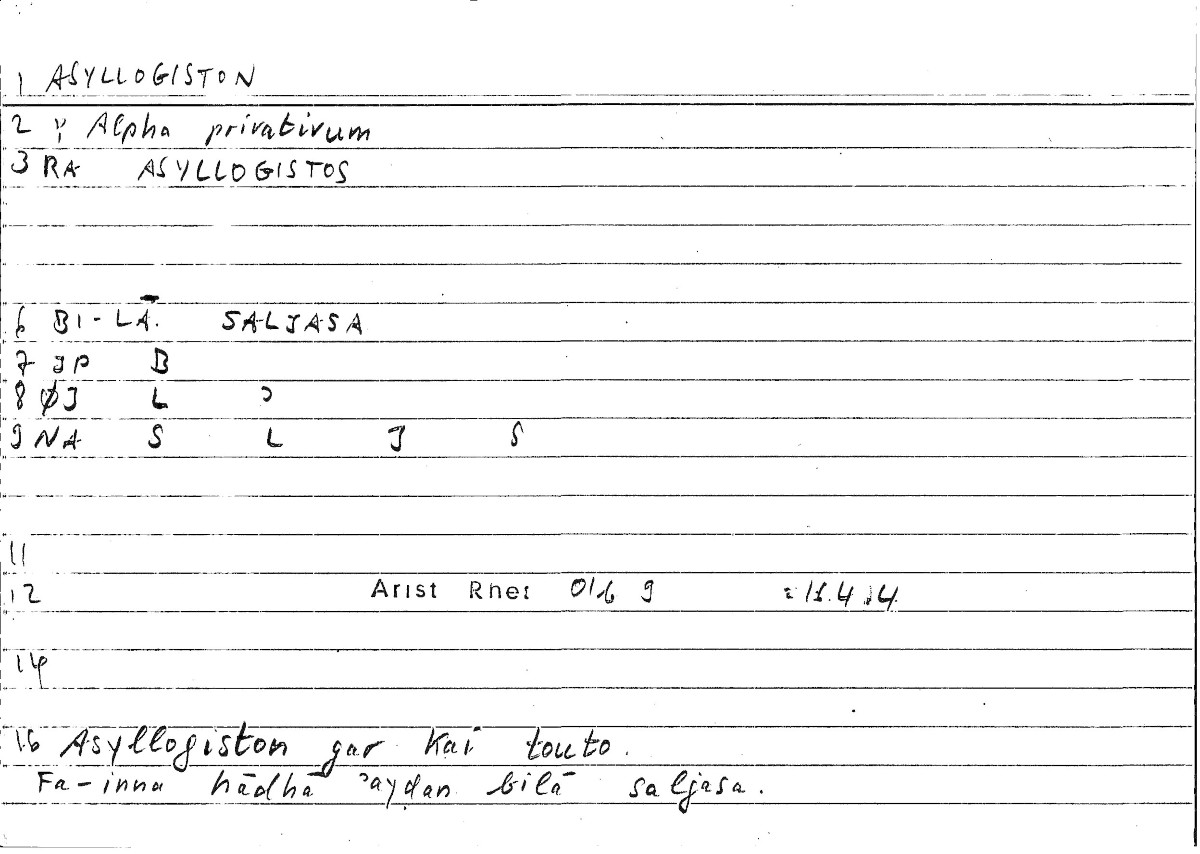 1 ASYLLOGISTON
2 ; Alpha privativum
3 RA ASYLLOGISTOS
6 BI-LĀ. SALJASA
7 JP B
8 ØJ L ɔ
9 NA S L J S
11
12 Arist Rhet 01b 9 = 15.4 ; 4
14
16 Asyllogiston gar kai touto.
Fa-inna hādhā ʾaydan bilā saljasa.